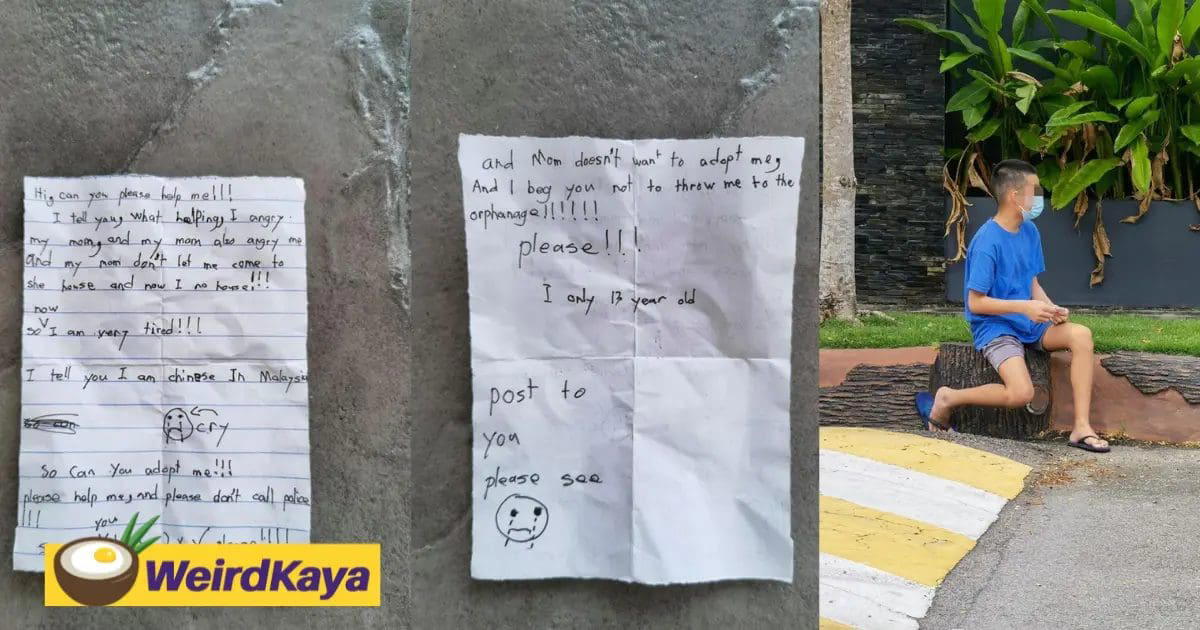 Hi, can you please help me!!!
I tell you, what helping, I angry
my mom, and my mom also angry me
and my mom don't let me come to
she house and now I no house!!!
now
so I am very tired!!!
I tell you I am chinese In Malaysia
cry
So Can You adopt me!!!
please help me, and please don't call police
!!!
you
WeirdKaya
and Mom doesn't want to adopt me,
And I beg you not to throw me to the
orphanage!!!!!!
please!!!
I only 13 year old
post to
you
please see